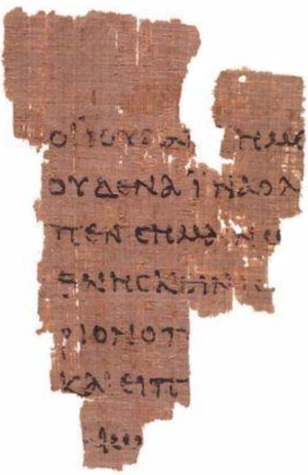 ΟΙΙΟΥΔΑΙ ΗΜ
ΟΥΔΕΝΑΪΝΑΟΛ
ΠΕΝϹΗΜΑΙΝΩ
ΘΝΗϹΚΕΙΝ
ΡΙΟΝΟΠ
ΚΑΙΕΙΠ